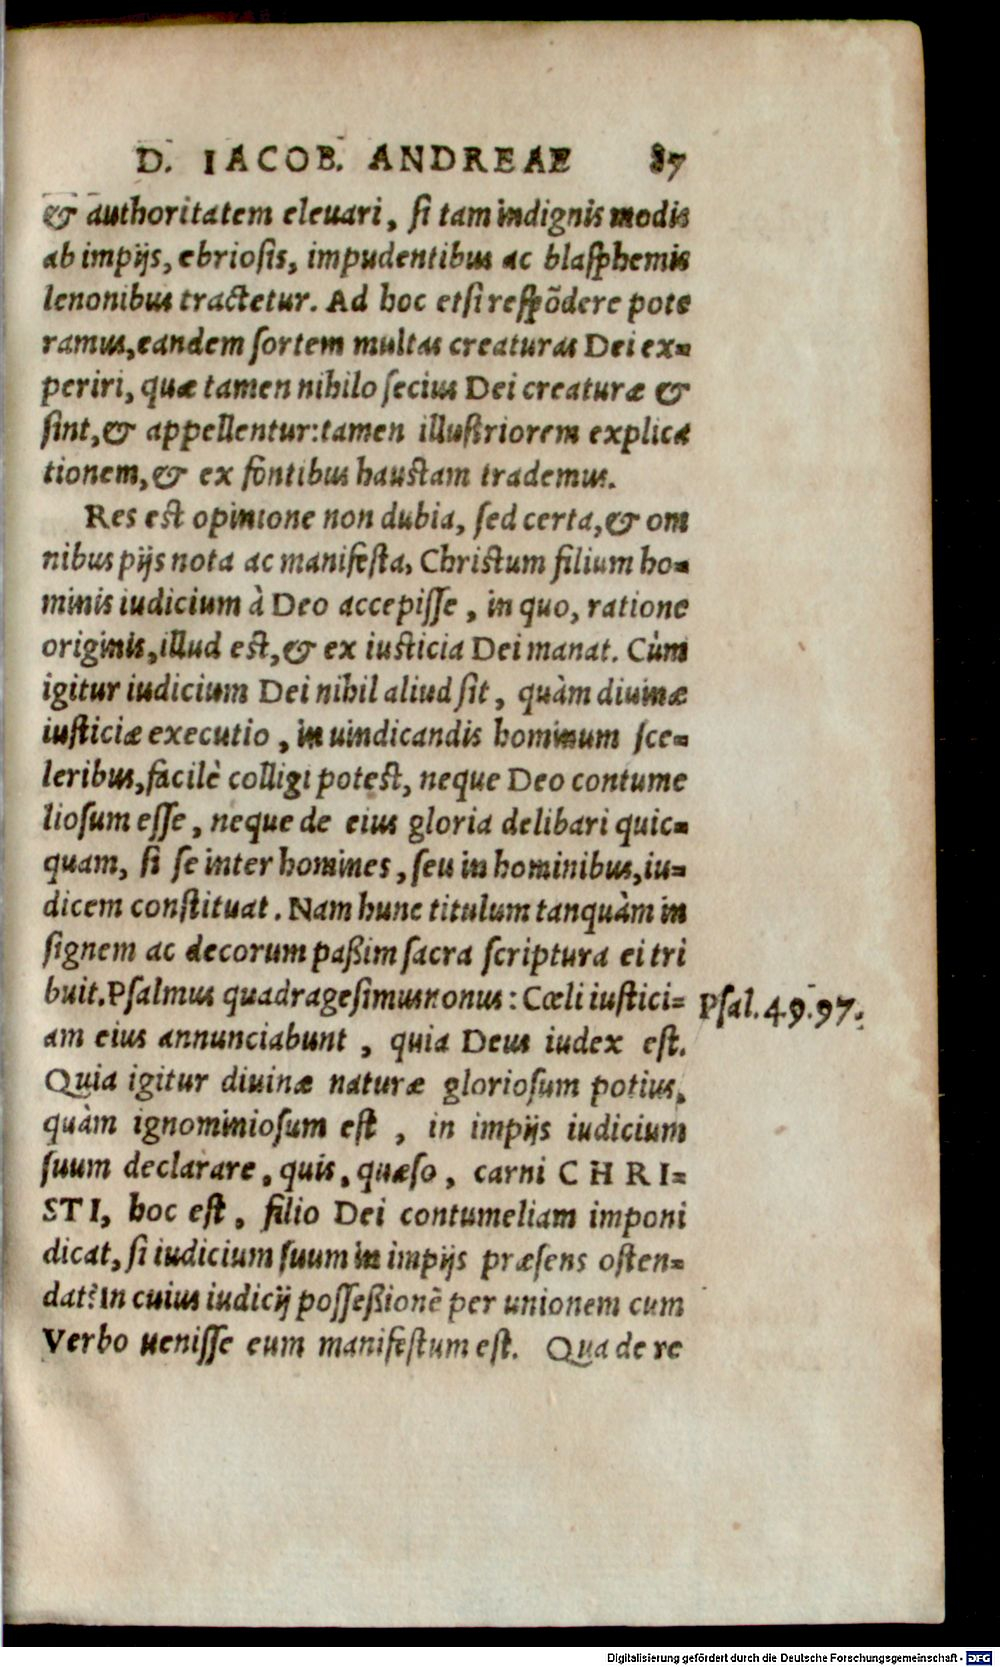 D. IACOB. ANDREAE 87
& authoritatem eleuari, si tam indignis modis
ab impijs, ebriosis, impudentibus ac blasphemis
lenonibus tractetur. Ad hoc etsi respõdere pote
ramus, eandem sortem multas creaturas Dei ex=
periri, quæ tamen nihilo secius Dei creaturæ &
sint, & appellentur: tamen illustriorem explica
tionem, & ex fontibus haustam trademus.
Res est opinione non dubia, sed certa, & om
nibus pijs nota ac manifesta, Christum filium ho=
minis iudicium à Deo accepisse, in quo, ratione
originis, illud est, & ex iusticia Dei manat. Cùm
igitur iudicium Dei nihil aliud sit, quàm diuinæ
iusticiæ executio, in uindicandis hominum sce=
leribus, facilè colligi potest, neque Deo contume
liosum esse, neque de eius gloria delibari quic=
quam, si se inter homines, seu in hominibus, iu=
dicem constituat. Nam hunc titulum tanquàm in
signem ac decorum paßim sacra scriptura ei tri
buit. Psalmus quadragesimusnonus: Cœli iustici=
Psal. 49.97.
am eius annunciabunt, quia Deus iudex est.
Quia igitur diuinæ naturæ gloriosum potius,
quàm ignominiosum est, in impijs iudicium
suum declarare, quis, quæso, carni CHRI=
STI, hoc est, filio Dei contumeliam imponi
dicat, si iudicium suum in impijs præsens osten=
dat? In cuius iudicij possessionẽ per unionem cum
Verbo uenisse eum manifestum est. Qua de re
Digitalisierung gefördert durch die Deutsche Forschungsgemeinschaft - DFG